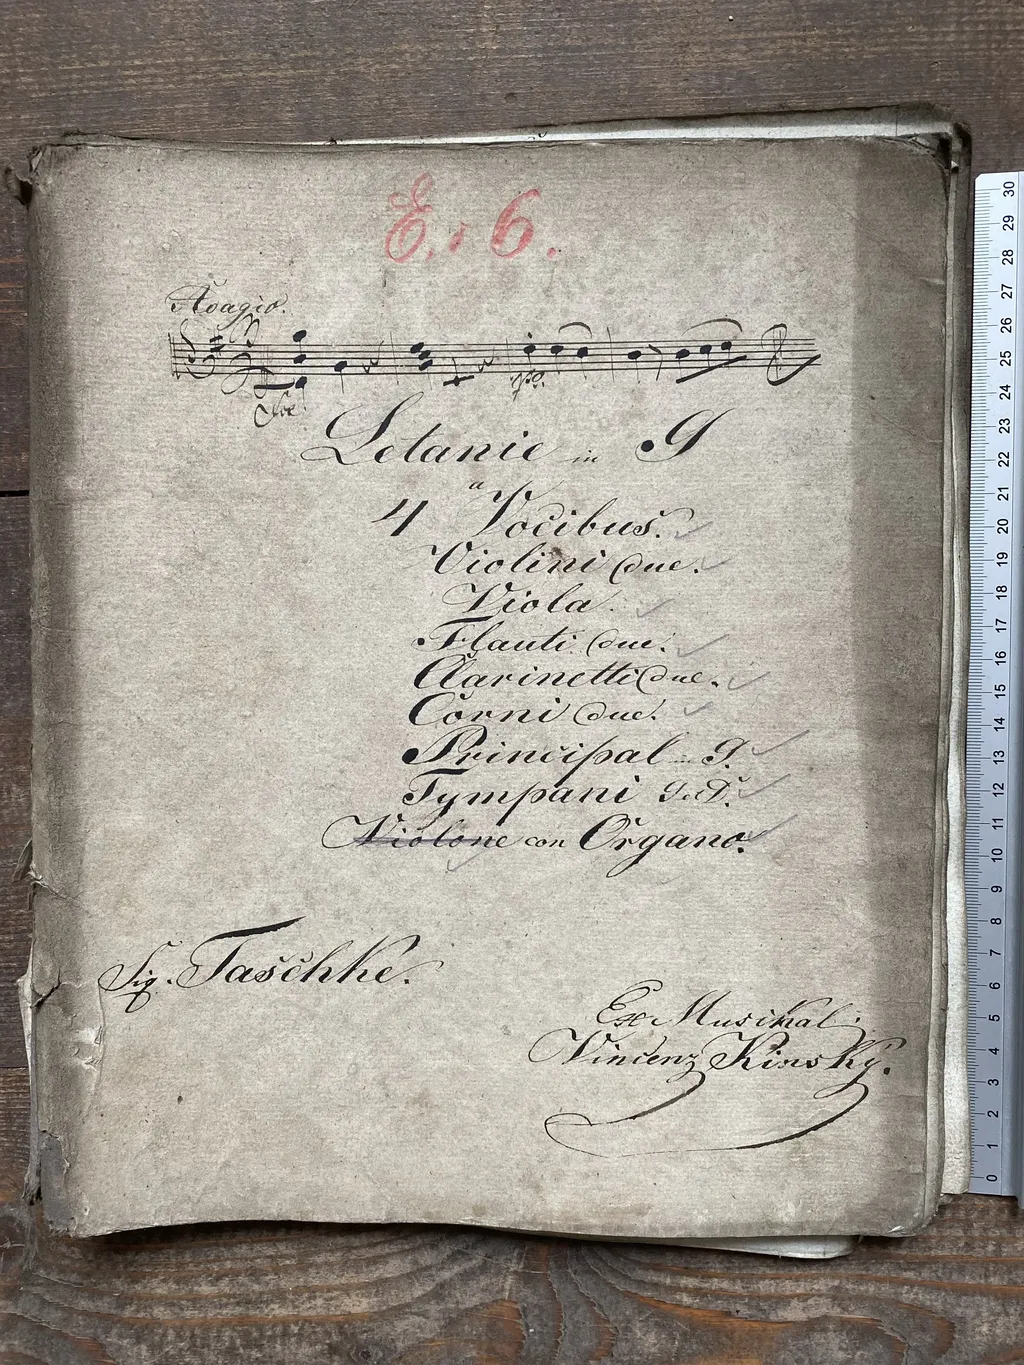 E. 6.
Adagio.
Letanie in G
a
4 Vocibus.
Violini due.
Viola.
Flauti due.
Clarinetti due.
Corni due.
Principal in G.
Tympani G et D.
Violone con Organo.
Sig. Taschke.
Ex Musikal:
Vincenz Kinsky.
30
29
28
27
26
25
24
23
22
21
20
19
18
17
16
15
14
13
12
11
10
9
8
7
6
5
4
3
2
1
0